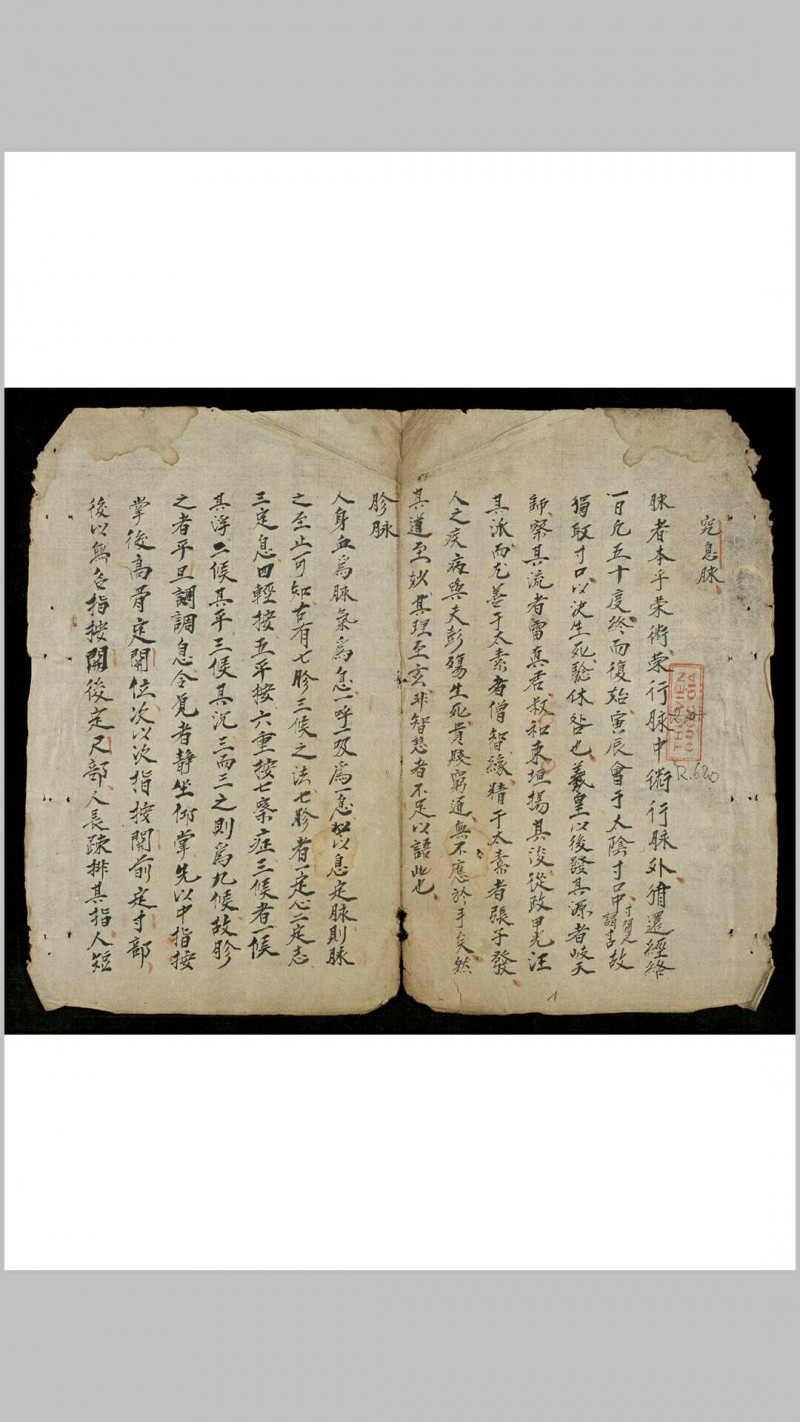 定息脉
脉者本乎荣術荣行脉中術行脉外循還經絡
一日凡五十度終而復始寅辰會于太陰寸口中故
獨取寸口以決生死騐休咎也羲皇以後發其源者岐天
師察其流者雷真君叔和東垣揚其後從政甲先汪
其派而尤善于太素者僧智緣精于太素者張子發
人之疾病與夫彭殤生死貴賤窮通無不應於手矣然
其道至妙其理至玄非智慧者不足以語此也
胗脉
人身血爲脉氣爲息一呼一吸爲一息以息定脉則脉
之至止可知古有七胗三候之法七胗者一定心二定志
三定息四輕按五平按六重按七察症三候者一候
其浮二候其平三候其沉三而三之則爲九候故胗
之者平旦調調息令覓者静坐仰掌先以中指按
掌後高骨定関位次以次指按関前定寸部
後以無名指按関後定尺部人長疎排其指人短
THU VIEN
QUOC GIA
R.620
1